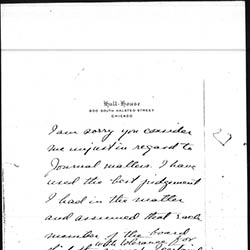 Hull-House
800 SOUTH HALSTED STREET
CHICAGO
I am sorry you consider
me unjust in regard to
Journal matters. I have
used the best judgement
I had in the matter
and assumed that each
member of the board
did it with tolerance